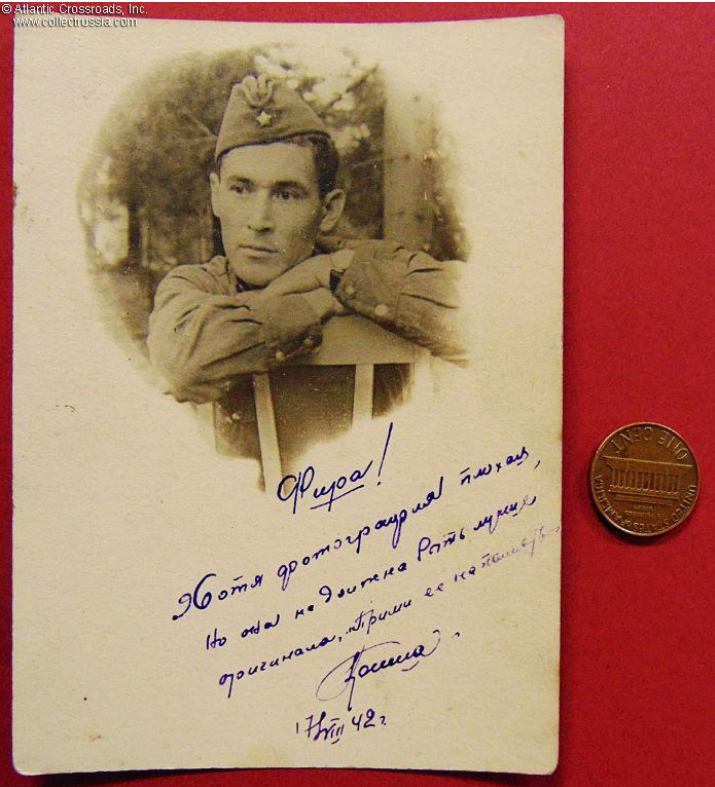 © Atlantic Crossroads, Inc.
www.collectrussia.com
Фира!
Хотя фотография плохая,
но она не должна быть лучше
оригинала. Прими ее на память.
17/VIII 42 г.
UNITED STATES OF AMERICA
ONE CENT